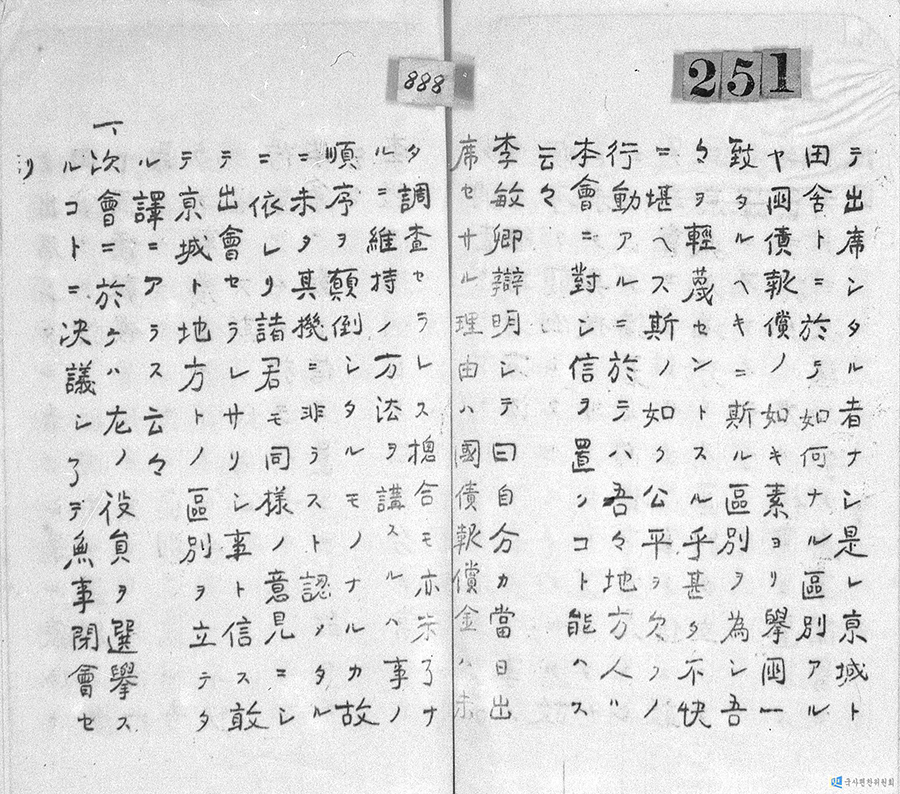 251
888
ニ出席シタル者ナシ是レ京城ト
田舎トニ於テ如何ナル區別アル
ヤ國債報償ノ如キ素ヨリ擧國一
致タルヘキニ斯ル區別ヲ為シ吾
々ヲ輕蔑セントスル乎甚タ不快
ニ堪ヘス斯ノ如ク公平ヲ欠クノ
行動アルニ於テハ吾々地方人ハ
本會ニ對シ信ヲ置クコト能ハス
云々
李敏卿辯明シテ曰自分カ當日出
席セサル理由ハ國債報償金ハ未
タ調査セラレス摠合モ亦未了ナ
ルニ維持ノ方法ヲ講スルハ事ノ
順序ヲ顛倒シタルモノナルカ故
ニ未タ其機ニ非ラスト認メタル
ニ依レリ諸君モ同様ノ意見ニシ
テ出會セラレサリシ事ト信ス敢
テ京城ト地方トノ區別ヲ立テタ
ル譯ニアラス云々
一、次會ニ於テハ左ノ役員ヲ選擧ス
ルコトニ決議シ了テ無事閉會セ
リ
국사편찬위원회